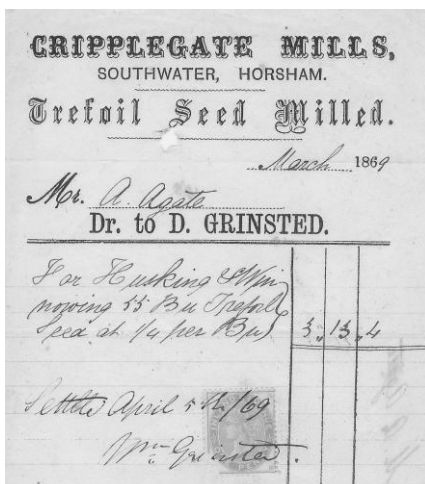 CRIPPLEGATE MILLS,
SOUTHWATER, HORSHAM.
Trefoil Seed Milled.
March 1869
Mr. A. Agate
Dr. to D. GRINSTED.
For Husking & Win
nowing 55 Bu Trefoil
Seed at 1/4 per Bus. 3, 13, 4
Settled April 5th/69
Wm Grinsted.